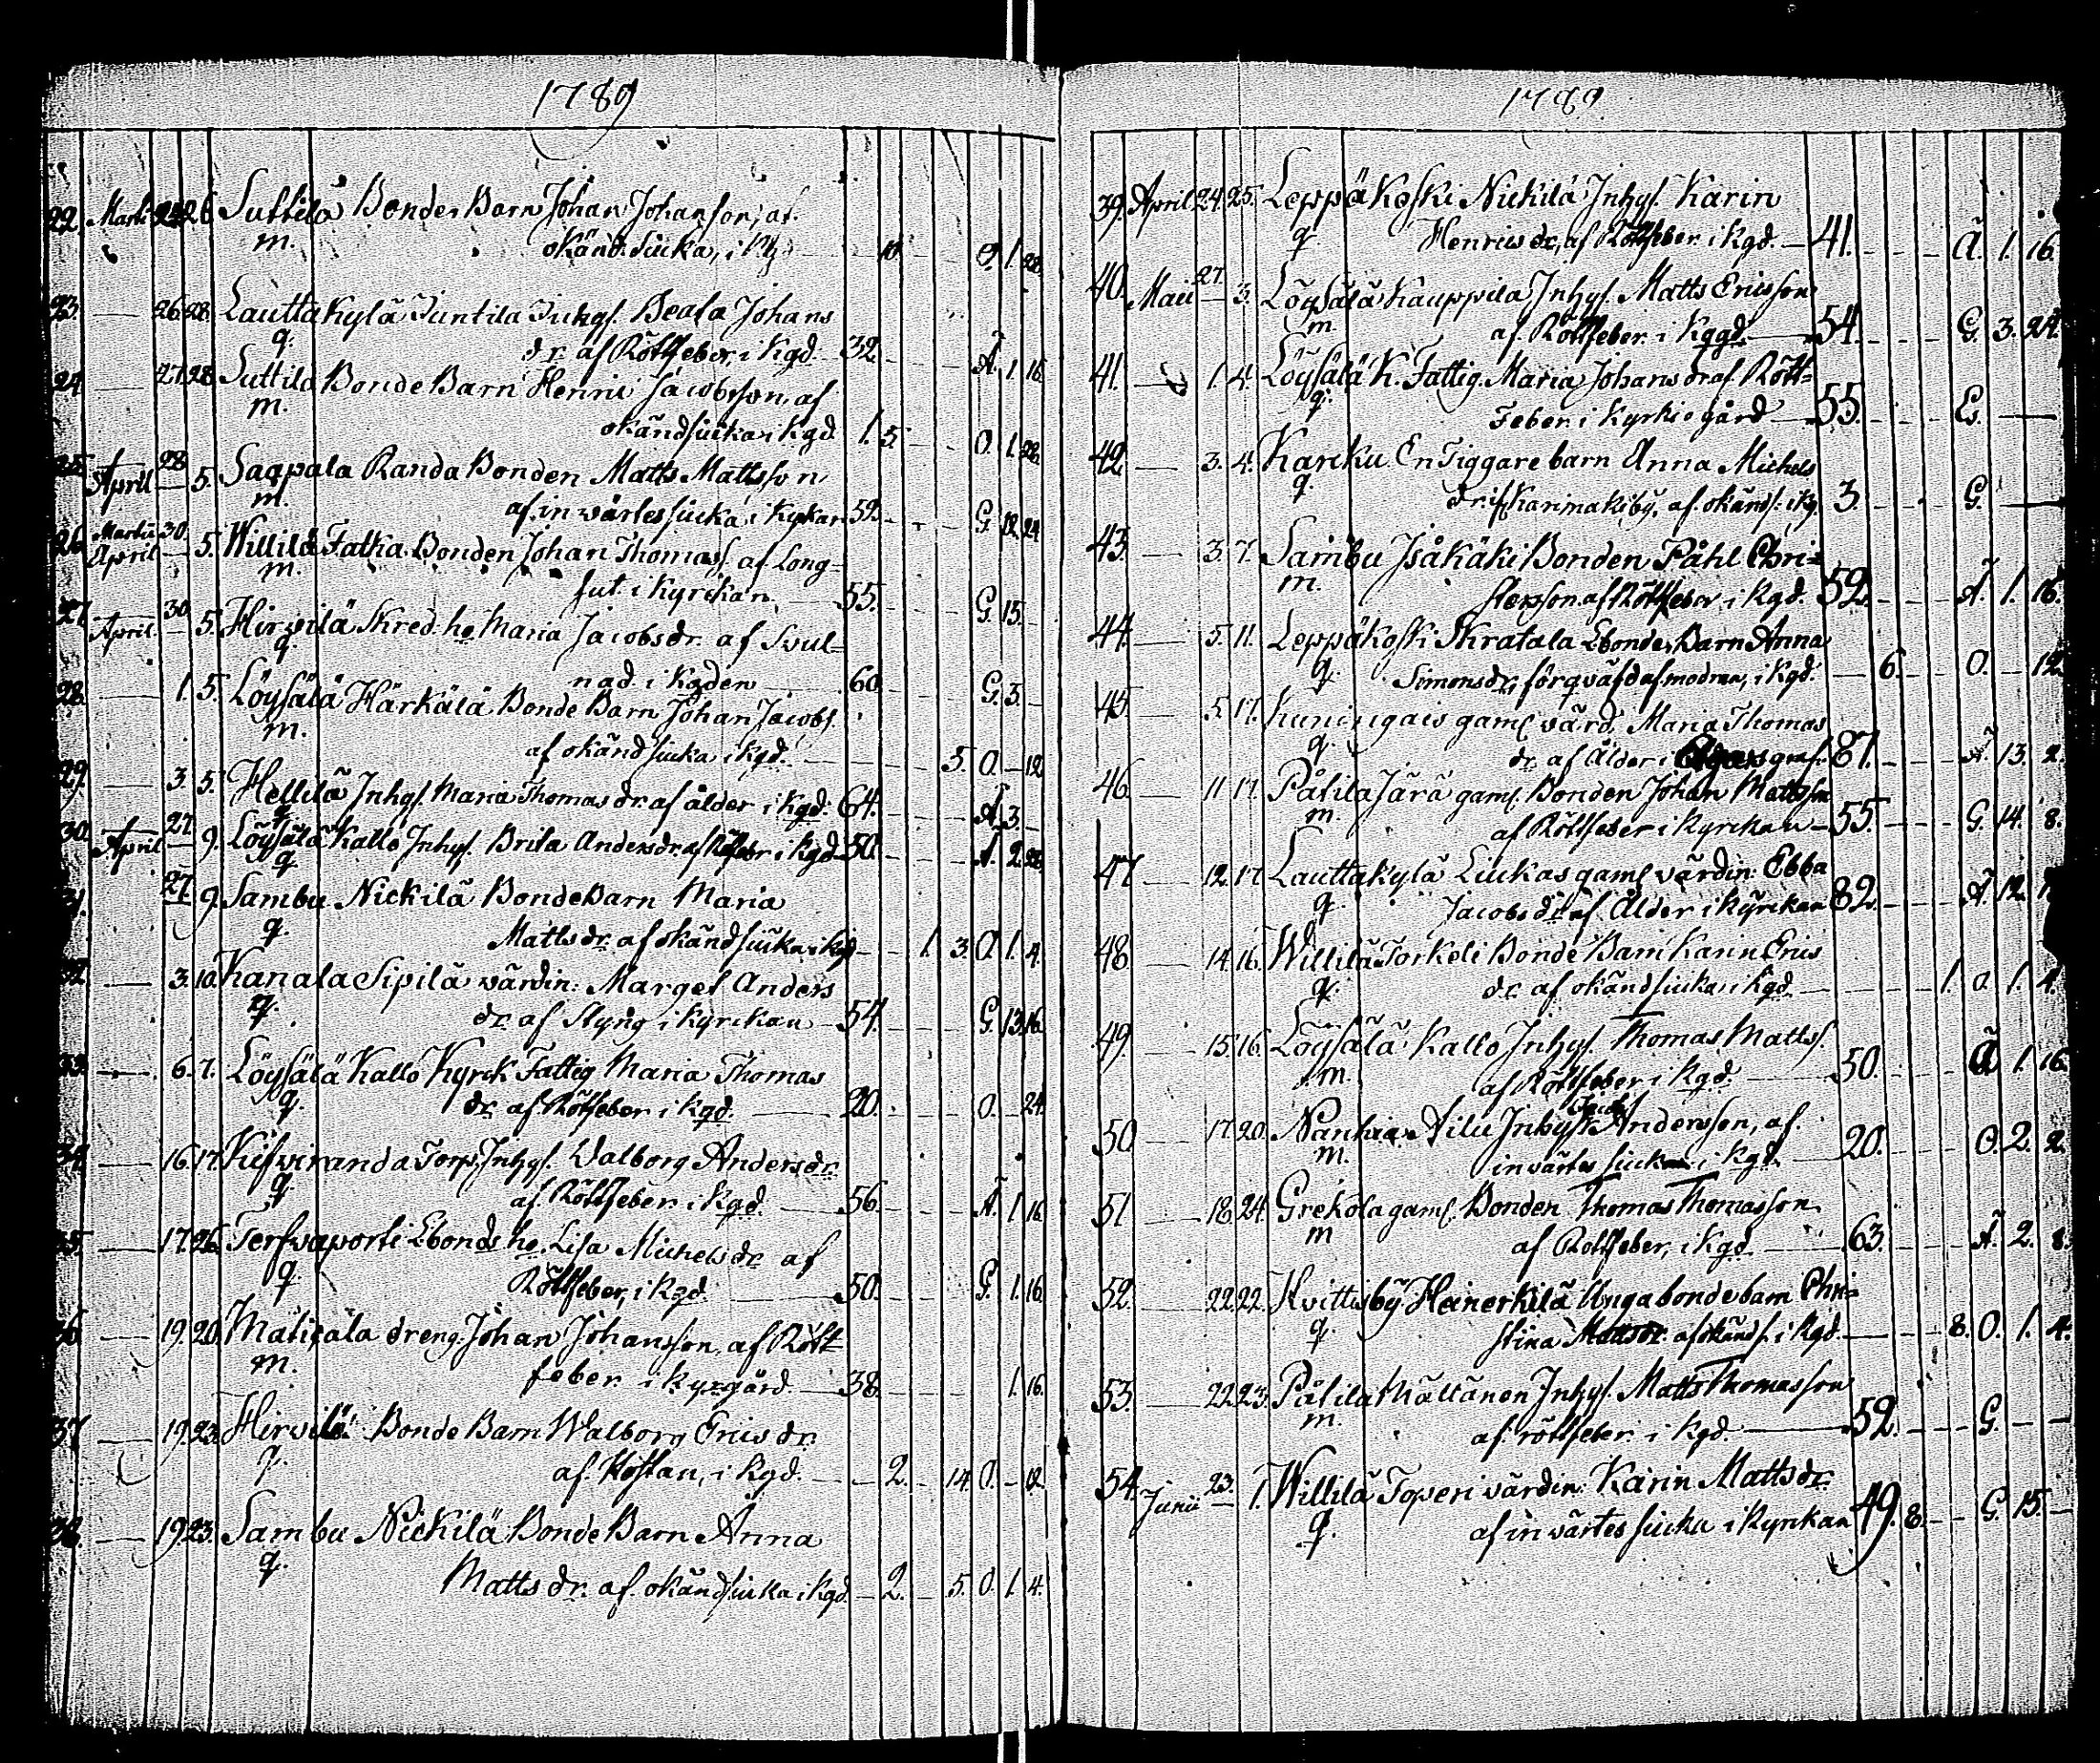 1789
22. Martii 24 26. Suttila Bonde Barn Johan Johansson, af
m. okänd siucka, i kg. 10. O. 1. 28.
23. — 26. 28. Lauttakylä Juntila Inhys. Beata Johans
q. dr. af Rötfeber i kgd. 32. Ä. 1. 16.
24. — 27. 28. Suttila Bonde Barn Henric Jacobsson, af
m. okänd siucka i kgd. 1. 5. O. 1. 28.
25. April 28. 5. Sagpala Randa Bonden Matts Mattsson
m. af invärtes siucka, i kyrkan 59. G. 12. 24.
26. Martii April 30. 5. Willilä Bonden Johan Thomass. af Long-
m. sut. i kyrckan 55. G. 15. —
27. April 30. 5. Hirvilä Skred. ho. Maria Jacobsdr. af Svul-
q. nad. i kgden 60. G. 3. —
28. — 1. 5. Löysälä Härkälä Bonde Barn Johan Jacobs.
m. af okänd siucka i kgd. 5. O. — 12.
29. — 3. 5. Hellilä Inhys. Maria Thomasdr. af ålder i kgd. 64. Ä. 3. —
30. April 27. 9. Löysälä Kallo Inhys. Brita Andersdr. af Rötfeber i kgd. 50. Ä. 2. 28.
q.
31. 27. 9. Sambu Nickilä Bonde Barn Maria
q. Mattsdr. af okänd siucka i kgd. — 1. 3. O. 1. 4.
32. — 3. 10. Kanala Sipilä värdin. Marget Anders
q. dr. af Styng i kyrckan 54. G. 13. 16.
33. — 6. 7. Löysälä Kallo Kyrck Fattig Maria Thomas
q. dr. af Rötfeber i kgd. 20. O. — 24.
34. — 16. 17. Kiesviranda Torp. Inhys. Walborg Andersdr.
q. af Rötfeber i kgd. 56. Ä. 1. 16.
35. — 17. 26. Tersvaporti Ebonds ho. Lisa Michelsdr. af
q. Rötfeber, i kgd. 50. G. 1. 16.
36. — 19. 20. dreng. Johan Johansson, af Röt-
m. feber i kyrgård. 38. 1. 16.
37. — 19. 23. Hirvilä Bonde Barn Walborg Ericsdr.
q. af Hostan, i kgd. — 2. — 14. O. — 12.
38. — 19. 23. Sambu Nickilä Bonde Barn Anna
q. Mattsdr. af okänd siucka i kgd. — 2. — 5. O. 1. 4.
1789
39. April 24. 25. Leppäkoski Nickilä Inhys. Karin
q. Henricsdr. af Rötfeber i kgd. — 41. Ä. 1. 16.
40. Maii 27. 3. Löysälä Kauppila Inhys. Matts Ericsson
m. af Rötfeber i kggd. — 54. G. 3. 24.
41. — 1. 4. Löysälä K. Fattig. Maria Johansdr. af Röt-
q. Feber i Kyrkiogård — 55. E. —
42. — 3. 4. Karcku En Tiggare barn Anna Michels
q. dr. if. Karimaki by, af okänd s. i kg. 3. G. —
43. — 3. 7. Sambu Isåkäki Bonden Påhl Chri-
m. stersson. af Rötfeber i kgd. 52. Ä. 1. 16.
44. — 5. 11. Leppäkoski Skratala Ebondes Barn Anna
q. Simonsdr. förqväfd af modren, i kgd. — 6. O. — 12.
45. — 5. 17. Kuningais gaml värd. Maria Thomas
q. dr. af Ålder i graf. 87. Ä. 13. 2.
46. — 11. 17. Påtila Järä gaml. Bonden Johan Mattsson
m. af Rötfeber i kyrckan — 55. G. 14. 8.
47. — 12. 17. Lauttakylä Liukas gaml värdin. Ebba
q. Jacobsdr. af Ålder i kyrckan 82. Ä. 12.
48. — 14. 16. Willilä Torkeli Bonde Barn Karin Erics
q. dr. af okänd siucka, i kgd. — 1. O. 1. 4.
49. — 15. 16. Löysälä Kallo Inhys. Thomas Matts.
m. af Rötfeber i kgd. — 50. Ä. 1. 16.
50. — 17. 20. Nanhia Ailu Inhys. Jacob Andersson, af.
m. invärtes siucka i kgd. — 20. O. 2. 2.
51. — 18. 24. Grekola gaml. Bonden Thomas Thomasson
m. af Rötfeber, i kgd. — 63. Ä. 2. 8.
52. — 22. 22. Hvittisby Heinerkilä Unga bondebarn Chri-
q. stina Mattsdr. af okänd s. i kgd. — 8. O. 1. 4.
53. — 22. 23. Påtila Mällänen Inhys. Matts Thomasson
m. af rötfeber i kgd. — 52. G. — —
54. Junii 23. 1. Willilä Toperi värdin. Karin Mattsdr.
q. af invärtes siucka i kyrckan 49. 8. G. 15. —